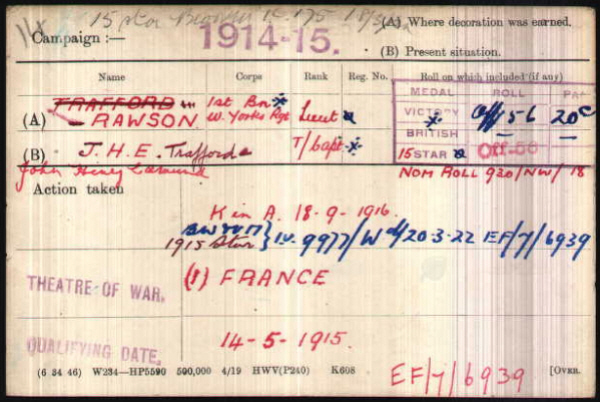 15 Star
1914-15.
(A) Where decoration was earned.
Campaign :—
(B) Present situation.
Name Corps Rank Reg. No. Roll on which included (if any)
MEDAL ROLL PAGE
TRAFFORD
(A) RAWSON 1st Bn W. Yorks Rgt Lieut
VICTORY Off 56 20c
BRITISH — —
(B) J. H. E. Trafford T/Capt
15 STAR Off-56
John Henry
NOM ROLL 920/NW/18
Action taken
K in A. 18-9-1916.
BW & VM
1915 Star } IV. 9977/W d/ 20-3-22 EF/7/6939
THEATRE OF WAR. (1) FRANCE
QUALIFYING DATE. 14-5-1915.
(6 34 46) W234—HP5590 500,000 4/19 HWV(P240) K608
EF/7/6939 [OVER.